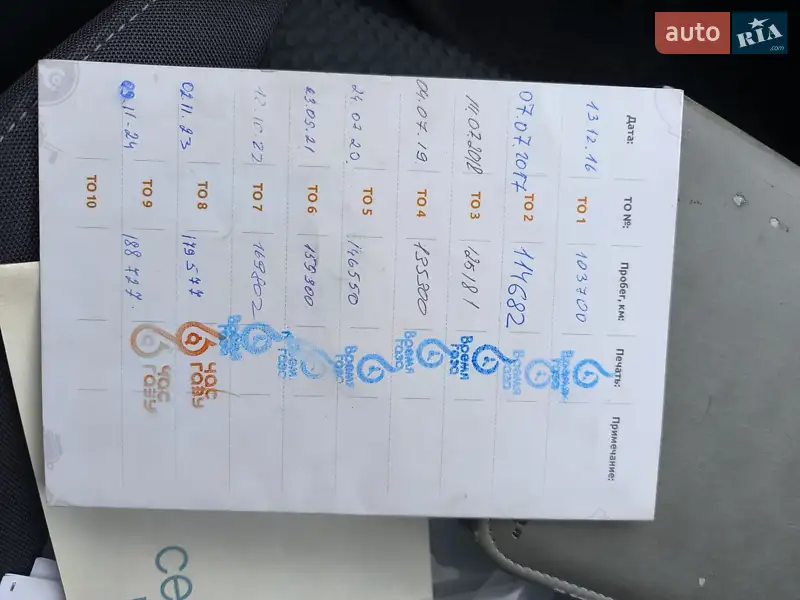 auto RIA .com
Дата: ТО №: Пробег, км: Печать: Примечание:
13.12.16 ТО 1 103700 Время Газа
07.07.2017 ТО 2 114682 Время Газа
14.07.2018 ТО 3 125181 Время Газа
04.07.19 ТО 4 135800 Время Газа
24.07.20. ТО 5 146550 Время Газа
23.09.21 ТО 6 159800 Газа
12.10.22 ТО 7 169802 Время
02.11.23 ТО 8 179577 ЧАС ГАЗУ
09.11.24 ТО 9 188777. ЧАС ГАЗУ
ТО 10
се